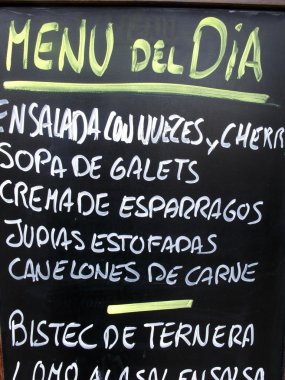 MENU DEL DÍA
ENSALADA CON NUEZES y CHERR
SOPA DE GALETS
CREMA DE ESPARRAGOS
JUDIAS ESTOFADAS
CANELONES DE CARNE
BISTEC DE TERNERA
LOMO A LA SAL EN SALSA